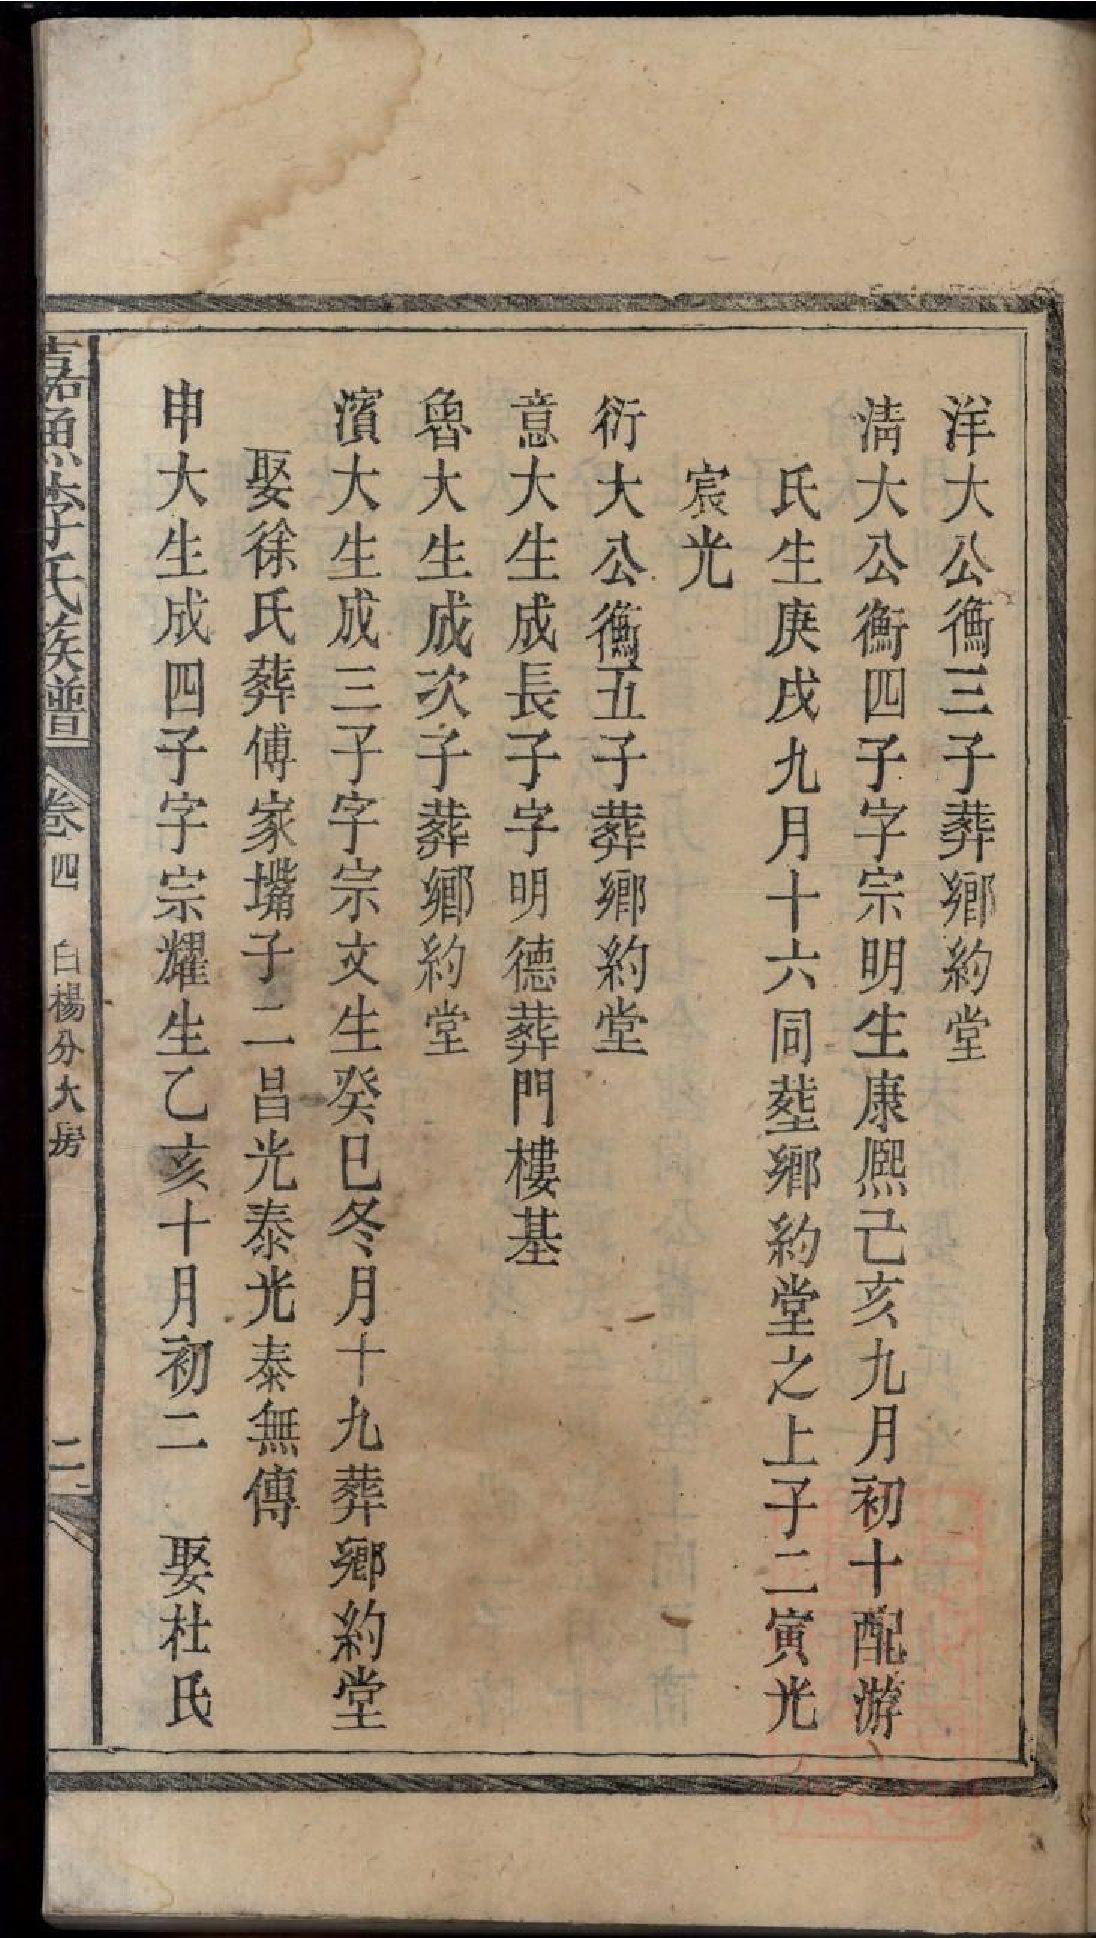 洋大公衡三子葬鄉約堂
淸大公衡四子字宗明生康熈己亥九月初十配游
氏生庚戌九月十六同塟鄉約堂之上子二寅光
宸光
衍大公衡五子葬鄉約堂
意大生成長子字明德葬門樓基
魯大生成次子葬鄉約堂
濱大生成三子字宗文生癸巳冬月十九葬鄉約堂
娶徐氏葬傅家墈子二昌光泰光泰無傳
申大生成四子字宗耀生乙亥十月初二 娶杜氏
嘉魚李氏族譜 卷四 白楊分大房 二